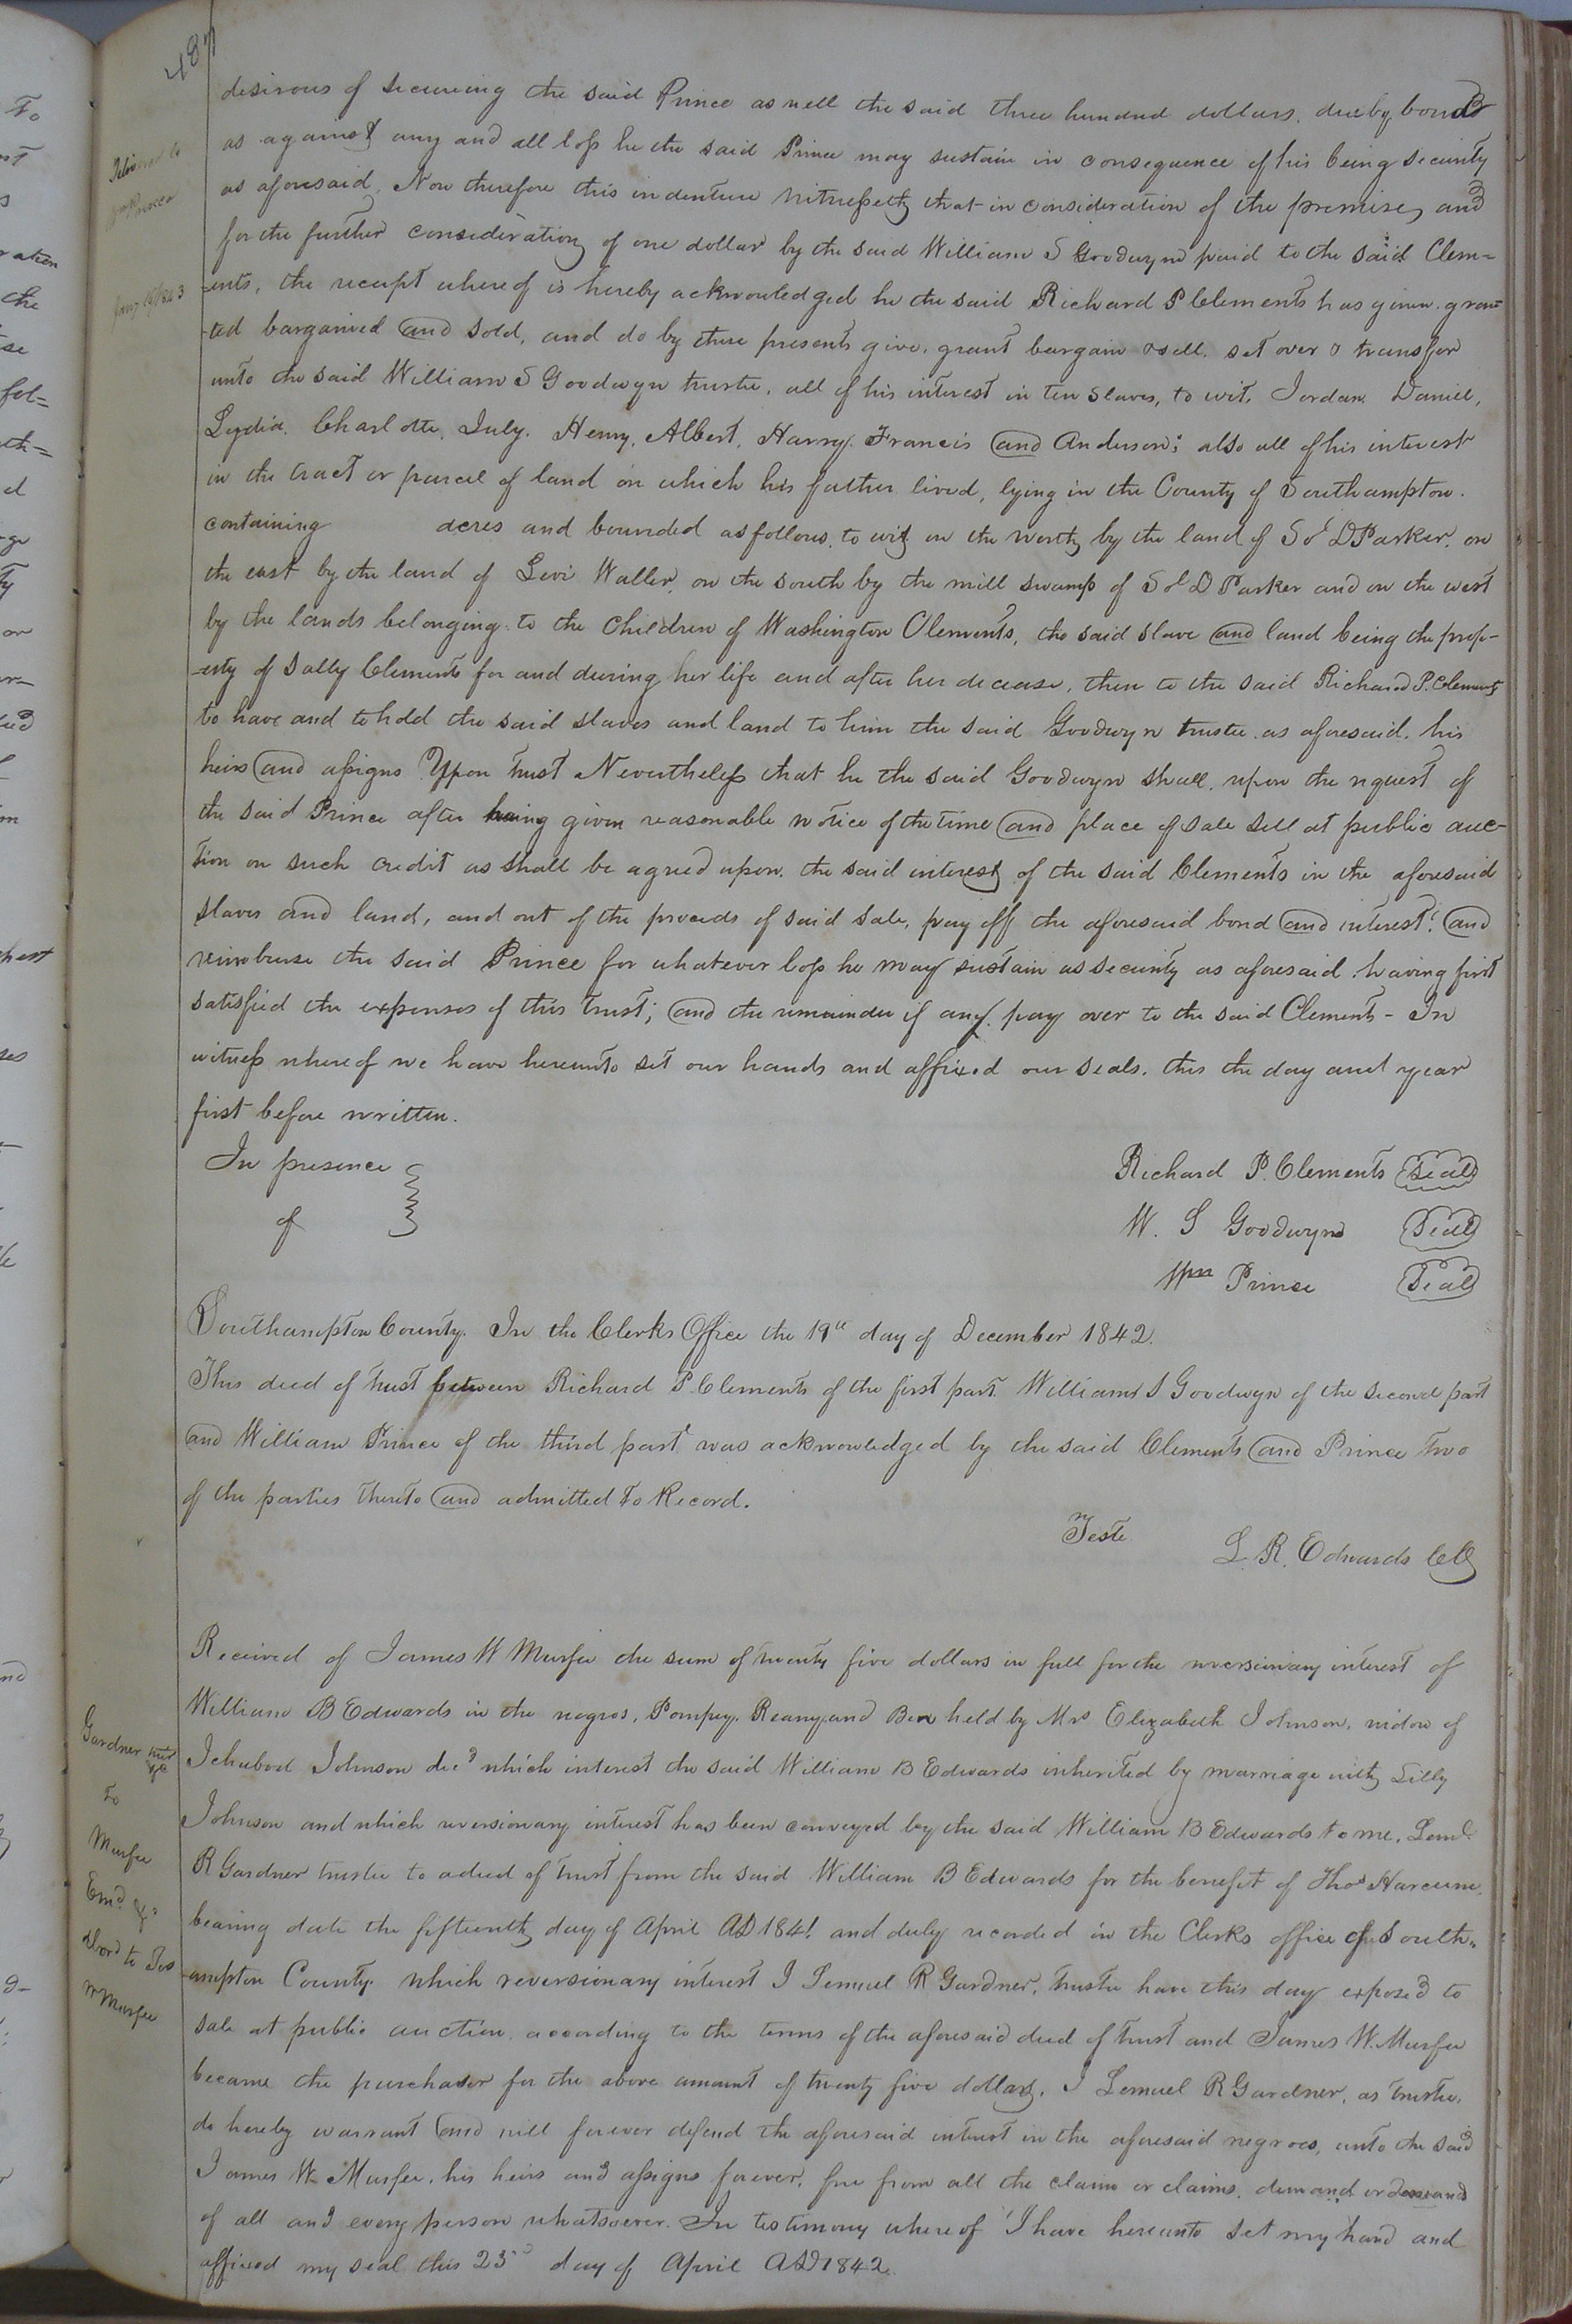 487
desirous of secureing the said Prince as well the said three hundred dollars, due by bond
as against any and all loss he the said Prince may sustain in consequence of his being security
as aforesaid. Now therefore this indenture witnesseth that in consideration of the premises and
for the further consideration of one dollar by the said William S Goodwyn paid to the said Clem=
-ents, the receipt whereof is hereby acknowledged he the said Richard P Clements has given. gran=
-ted bargained and sold, and do by these presents give, grant bargain & sell, set over & transfer
unto the said William S Goodwyn trustee, all of his interest in ten slaves, to wit, Jordan, Daniel,
Lydia, Charlotte, July, Henry, Albert, Harry, Francis and Anderson; also all of his interest
in the tract or parcel of land on which his father lived, lying in the County of Southampton.
containing acres and bounded as follows, to wit, on the north by the land of Sol D Parker, on
the east by the land of Levi Waller, on the south by the mill swamp of Sol D Parker and on the west
by the lands belonging to the Children of Washington Clements, the said slave and land being the prop-
-erty of Sally Clements for and during her life and after her decease, then to the said Richard P. Clements
to have and to hold the said slaves and land to him the said Goodwyn trustee as aforesaid. his
heirs and assigns Upon trust Nevertheless that he the said Goodwyn shall, upon the request of
the said Prince after having given reasonable notice of the time and place of sale sell at public auc-
tion on such credit as shall be agreed upon, the said interest of the said Clements in the aforesaid
slaves and land, and out of the proceeds of said sale, pay off the aforesaid bond and interest, and
reimburse the said Prince for whatever loss he may sustain as security as aforesaid. having first
satisfied the expenses of this trust; and the remainder if any, pay over to the said Clements - In
witness whereof we have hereunto set our hands and affixed our seals. this the day and year
first before written.
In presence
of
Richard P. Clements Seal
W. S Goodwyn Seal
Wm Prince Seal
Southampton County. In the Clerks Office the 19th day of December 1842.
This deed of trust between Richard P. Clements of the first part William S Goodwyn of the second part
and William Prince of the third part was acknowledged by the said Clements and Prince two
of the parties thereto and admitted to Record.
Teste
L. R. Edwards CC
Received of James W Murfee the sum of twenty five dollars in full for the reversionary interest of
William B Edwards in the negros, Pompey, Reany and Ben held by Mrs Elizabeth Johnson, widow of
Ichabod Johnson decd which interest the said William B Edwards inherited by marriage with Tilly
Johnson and which reversionary interest has been conveyed by the said William B Edwards to me, Leml
R Gardner trustee to a deed of trust from the said William B Edwards for the benefit of Thos Harcum,
bearing date the fifteenth day of April AD 1841 and duly recorded in the Clerks office of South=
-ampton County. which reversionary interest I Lemuel R Gardner, trustee have this day exposed to
sale at public auction according to the terms of the aforesaid deed of trust and James W. Murfee
became the purchaser for the above amount of twenty five dollars. I Lemuel R Gardner, as trustee,
do hereby warrant and will forever defend the aforesaid interest in the aforesaid negroes, unto the said
James W Murfee, his heirs and assigns forever, free from all the claim or claims, demand or demands
of all and every person whatsoever. In testimony whereof I have hereunto set my hand and
affixed my seal this 23d day of April AD 1842.
Gardner trust
to
Murfee
Exmd &c